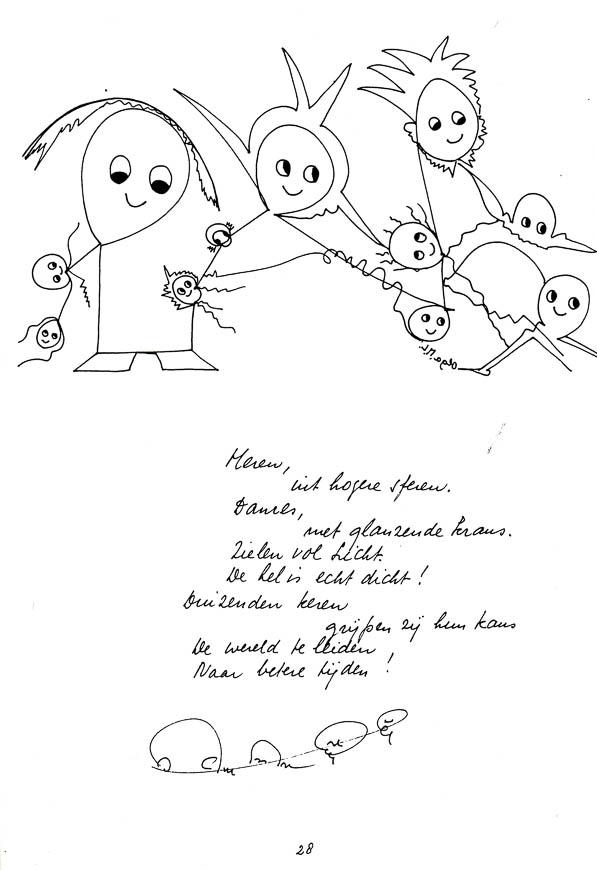 Heren,
uit hogere sferen.
Dames,
met glanzende krans.
Zielen vol Licht.
De hel is echt dicht!
Duizenden keren
grijpen zij hun kans
De wereld te leiden
Naar betere tijden!
28